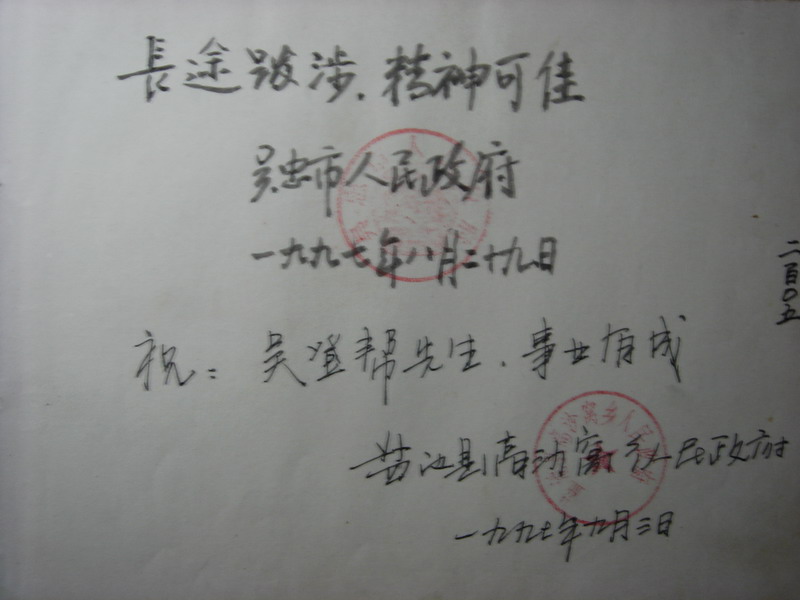 長途跋涉，精神可佳
吴忠市人民政府
一九九七年八月二十九日
祝：吴登帮先生，事业有成
盐池县高沙窝乡人民政府
一九九七年九月三日
二百〇五